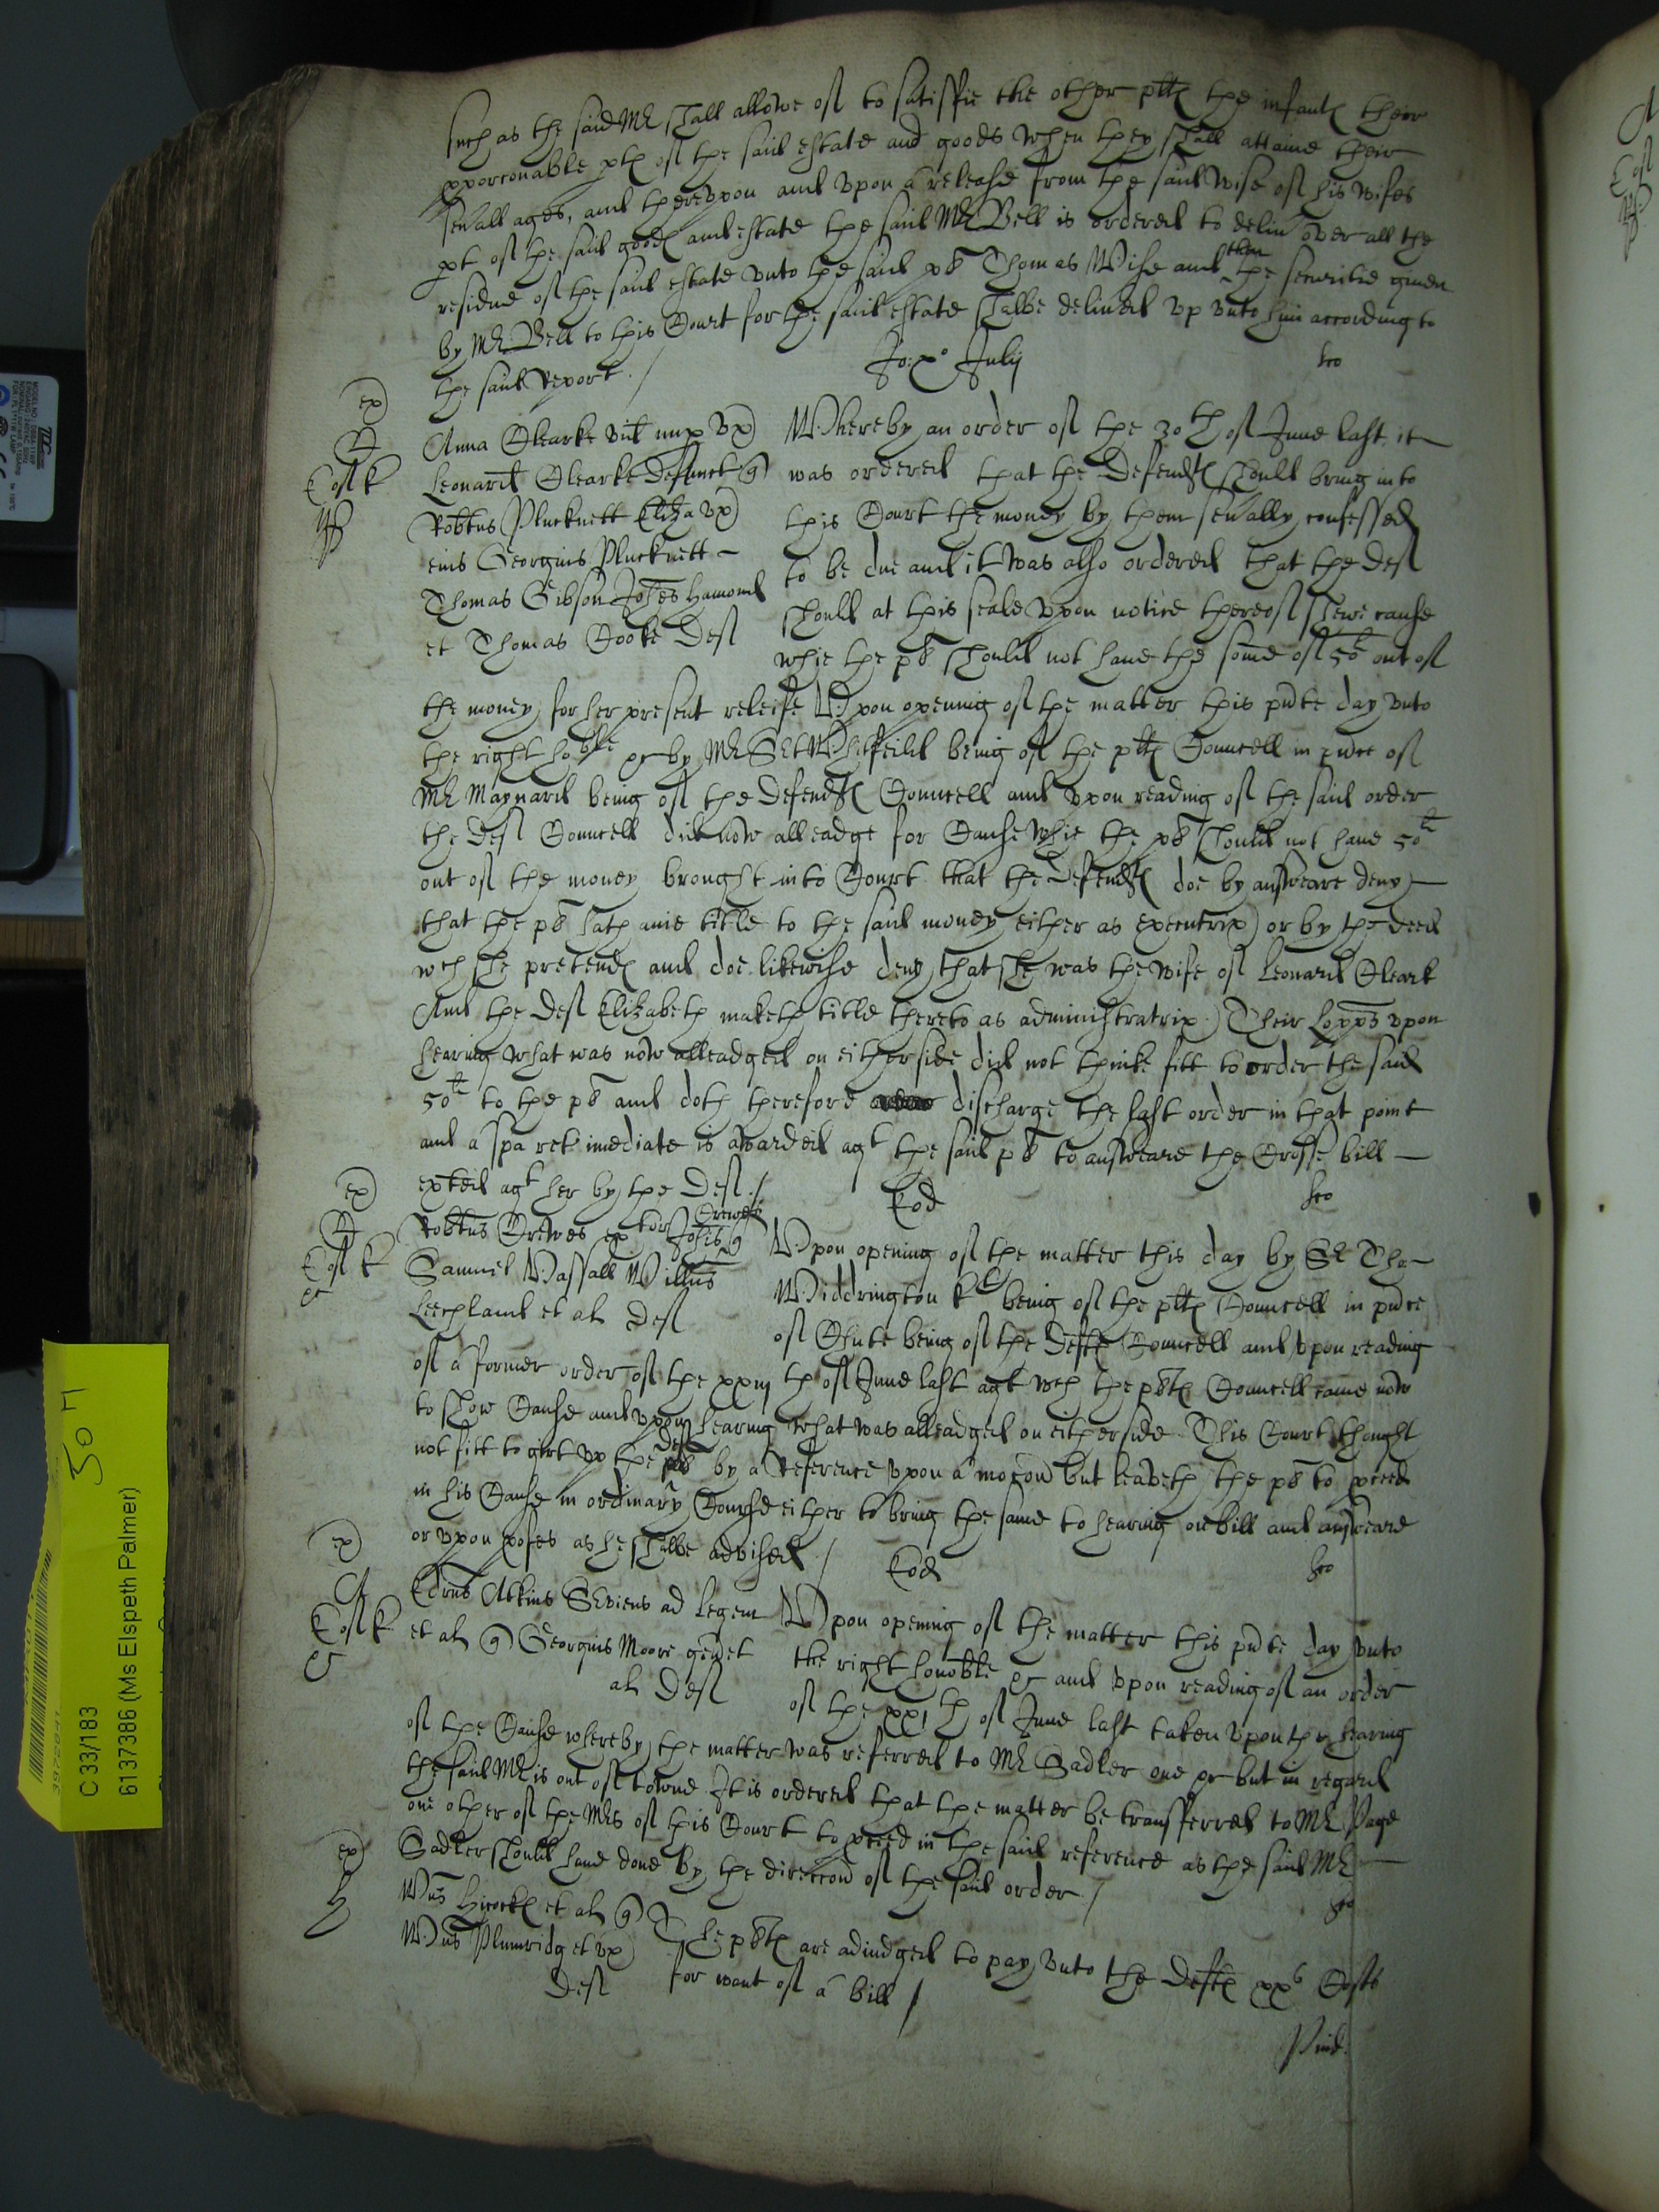 such as the said Mr shall allowe of to satisfie the other pltes the infantes their
pporconable ptes of the said estate and goods when they shall attaine their
seuall ages, and therevpon and vpon a release from the said Wise of his wifes
pt of the said goodes and estate the said Mr Bell is ordered to deliu over all the
residue of the said estate vnto the said pl Thomas Wise and then the securitie giuen
by Mr Bell to this Court for the said estate shalbe deliued vp vnto him according to
the said Report /
Jo: xo Julij
ex
A
Anna Clearke vid nup vx
Leonard Clearke Defunct
Robtus Plucknett Eliza vx
eius Georgius Plucknett
Thomas Gibson Johes Hamond
et Thomas Cooke Def
Whereby an order of the 30th of June last it
was ordered that the Defendtes should bring into
this Court the money by them seually confessed
to be due and it was also ordered that the Def
should at this seale vpon notice thereof shewe cause
whie the pl should not haue the some of 50l out of
the money for her present releife Vpon opening of the matter this pnte day vnto
the right hoble &c by Mr Sct Whitfeild being of the pltes Councell in pnce of
Mr Maynard being of the Defendtes Councell and vpon reading of the said order
the Def Councell did now alleadge for Cause whie the pl should not haue 50l
out of the money brought into Court that the Defendtes doe by answeare deny
that the pl hath anie title to the said money either as executrix or by the deed
wch she pretendes and doe likewise deny that she was the wife of Leonard Cleark
And the Def Elizabeth maketh title thereto as administratrix Their Lopps vpon
hearing what was now alleadged on either side did not thinke fitt to order the said
50l to the pl and doth therefore discharge the last order in that point
and a spa ret imediate is awarded agt the said pl to answeare the Crosse bill
exted agt her by the Def /
Eod
ex
A
Robtus Crewes extor Johis Crewes
Samuel Vassall Willus
Leechland et al Def
Vpon opening of the matter this day by Sr Tho:
Widdrington kt being of the pltes Councell in pnce
of Chute being of the Deftes Councell and vpon reading
of a former order of the xxiij th of June last agt wch the pltes Councell came now
to show Cause and vpon hearing what was alleadged on either side This Court thought
not fitt to girt vp the Def by a Reference vpon a mocon but leaveth the pl to pceed
in his Cause in ordinary Course either to bring the same to hearing on bill and answeare
or vpon pofes as he shalbe advised /
Eod
ex
A
Edrus Atkins Sviens ad Legem
et al Georgius Moore gen et
al Def
Vpon opening of the matter this pnte day vnto
the right honoble &c and vpon reading of an order
of the xxj th of June last taken vpon the hearing
of the Cause whereby the matter was referred to Mr Sadler one &c but in regard
the said Mr is out of towne It is ordered that the matter be transferred to Mr Page
one other of the Mrs of this Court to pceed in the said reference as the said Mr
Sadler should haue done by the direccon of the said order /
ex
Wus Hicockes et al
Wus Plumridg et vx
Def
The pltes are adiudged to pay vnto the Deftes xxs Costes
for want of a bill /
C 33/183
6137386 (Ms Elspeth Palmer)